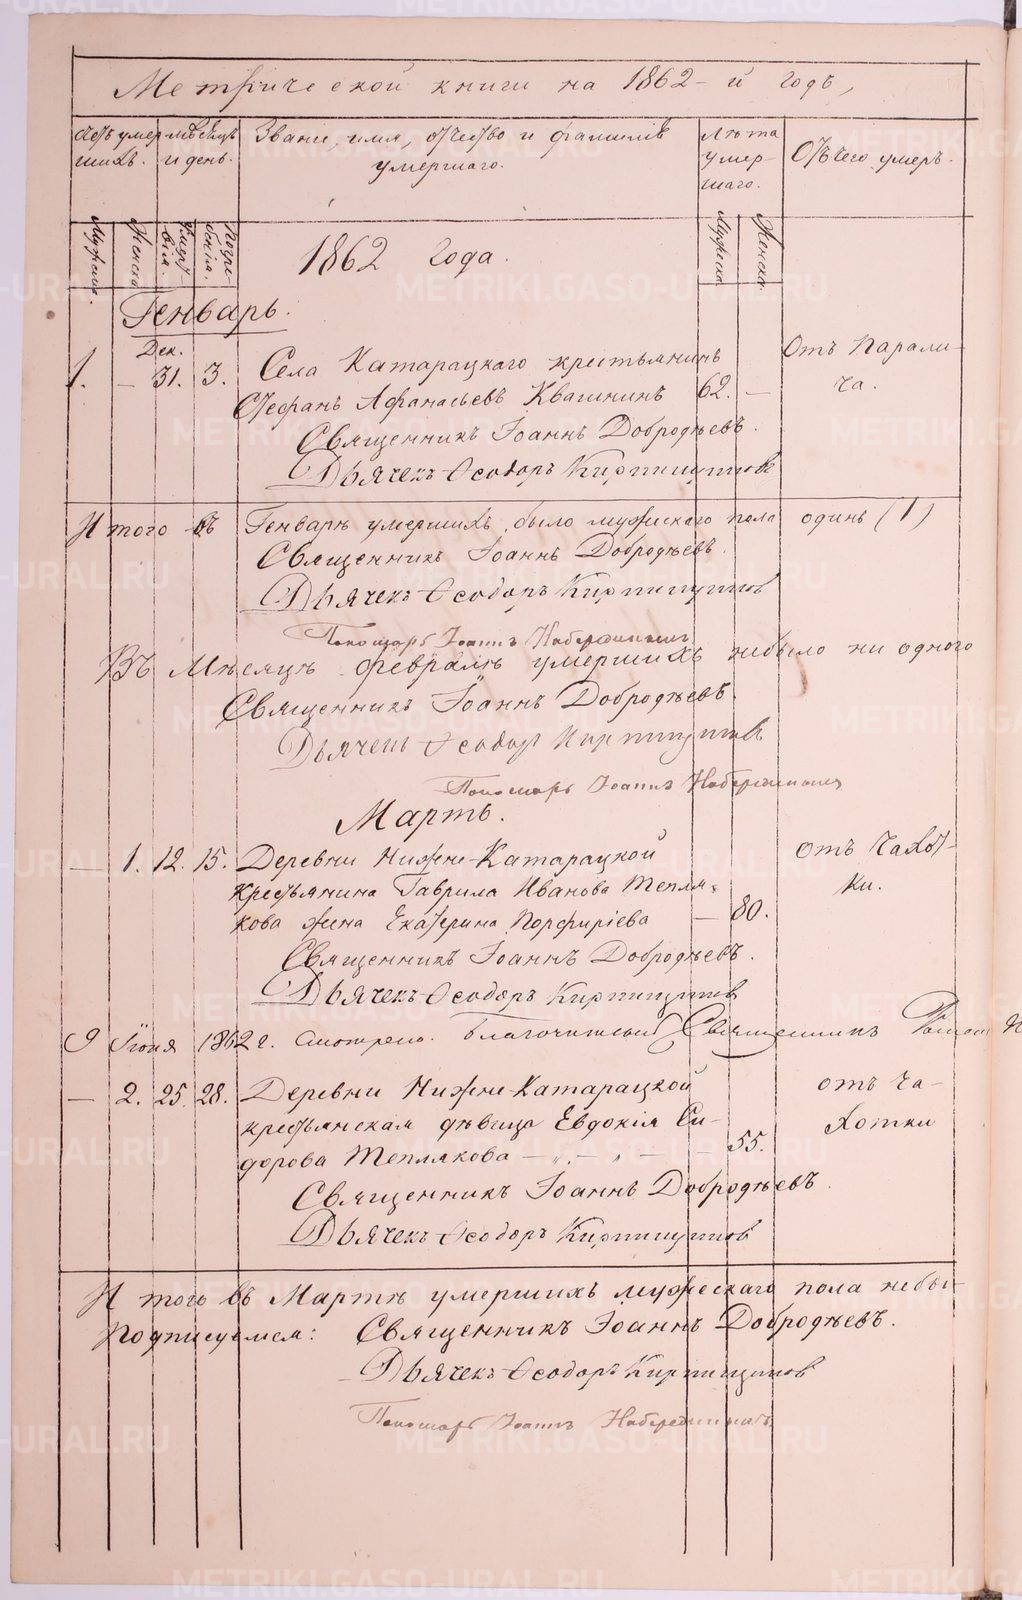 Метрической книги на 1862-й годъ,
Счетъ умер-
шихъ.
Мѣсяцъ
и день.
Званіе, имя, отчество и фамилія
умершаго.
Лѣта
умер-
шаго.
Отъ чего умеръ.
Мужска.
Женска
Смерт
Погре-
бенія.
Мужска
Женска
1862 Года.
Генварь.
1. — Дек. 31. 3. Села Катарацкаго крестьянинъ
Стефанъ Афанасьевъ Квашнинъ 62. —
Отъ парали-
ча.
Священникъ Іоаннъ Добродѣевъ.
Дьячекъ Ѳеодоръ Кирпищиковъ
Итого въ Генварѣ умершихъ было мужескаго пола одинъ (1)
Священникъ Іоаннъ Добродѣевъ.
Дьячекъ Ѳеодоръ Кирпищиковъ
Пономарь Іоаннъ
Въ Мѣсяцѣ Февралѣ умершихъ небыло ни одного
Священникъ Іоаннъ Добродѣевъ.
Дьячекъ Ѳеодоръ Кирпищиковъ
Пономарь Іоаннъ
Мартъ.
— 1. 12. 15. Деревни Нижне-Катарацкой
крестьянина Гаврила Иванова Тепля-
кова жена Екатерина Порфиріева — 80.
отъ Чахот-
ки.
Священникъ Іоаннъ Добродѣевъ.
Дьячекъ Ѳеодоръ Кирпищиковъ
9 Іюня 1862 г. Смотрено. Благочинный Священникъ
— 2. 25. 28. Деревни Нижне-Катарацкой
крестьянская дѣвица Евдокія Си-
дорова Теплякова — „ — „ — — 55.
отъ ча-
хотки
Священникъ Іоаннъ Добродѣевъ.
Дьячекъ Ѳеодоръ Кирпищиковъ
Итого въ Мартѣ умершихъ мужескаго пола небы-
Подписуемся: Священникъ Іоаннъ Добродѣевъ.
Дьячекъ Ѳеодоръ Кирпищиковъ
Пономарь Іоаннъ
METRIKI.GASO-URAL.RU